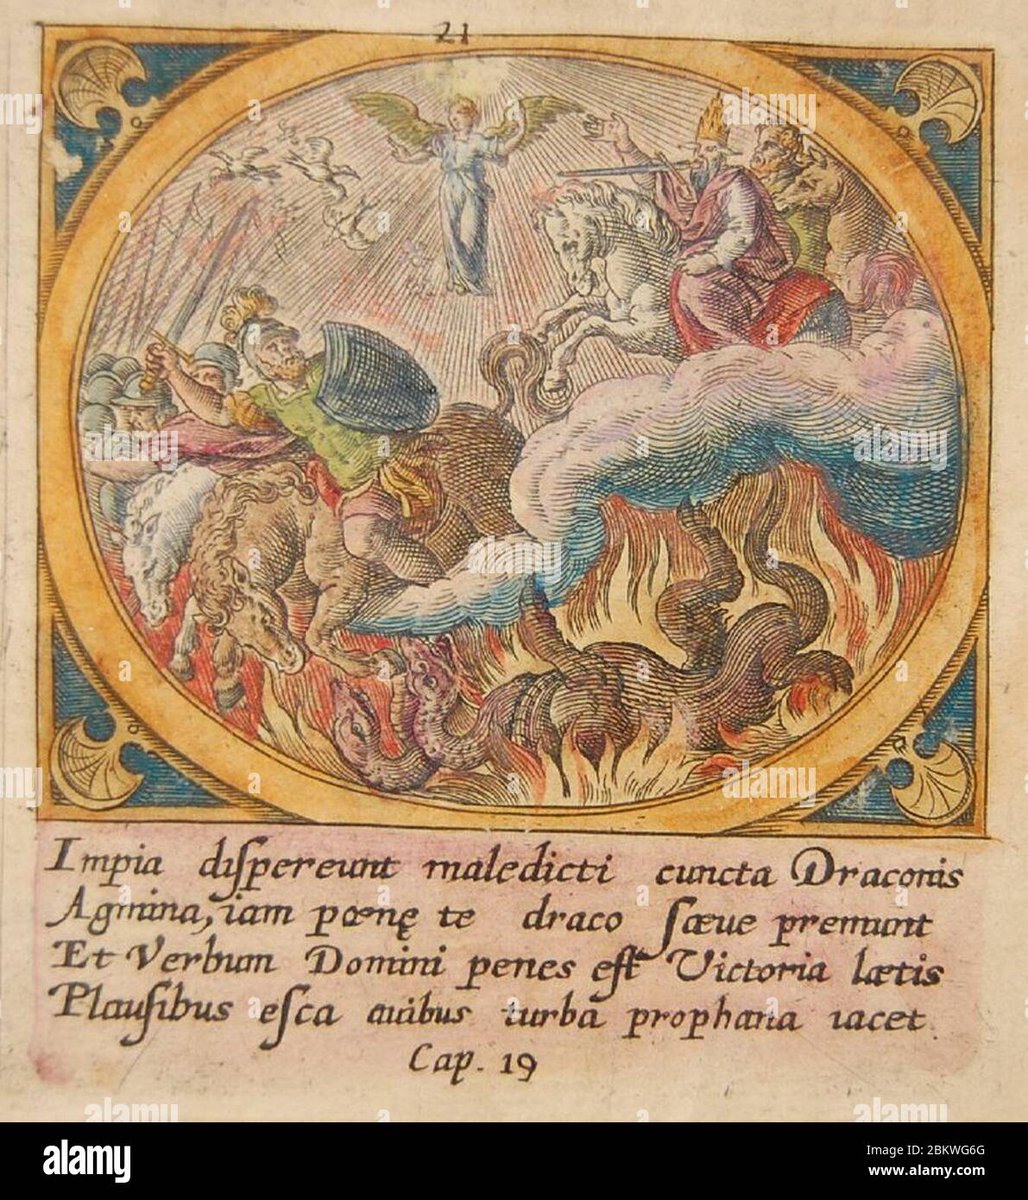 21
Impia dispereunt maledicti cuncta Draconis
Agmina, iam poenę te draco sæue premunt
Et Verbum Domini penes est Victoria lætis
Plausibus esca auibus turba prophana iacet.
Cap. 19
alamy
Image ID: 2BKWG6G
www.alamy.com